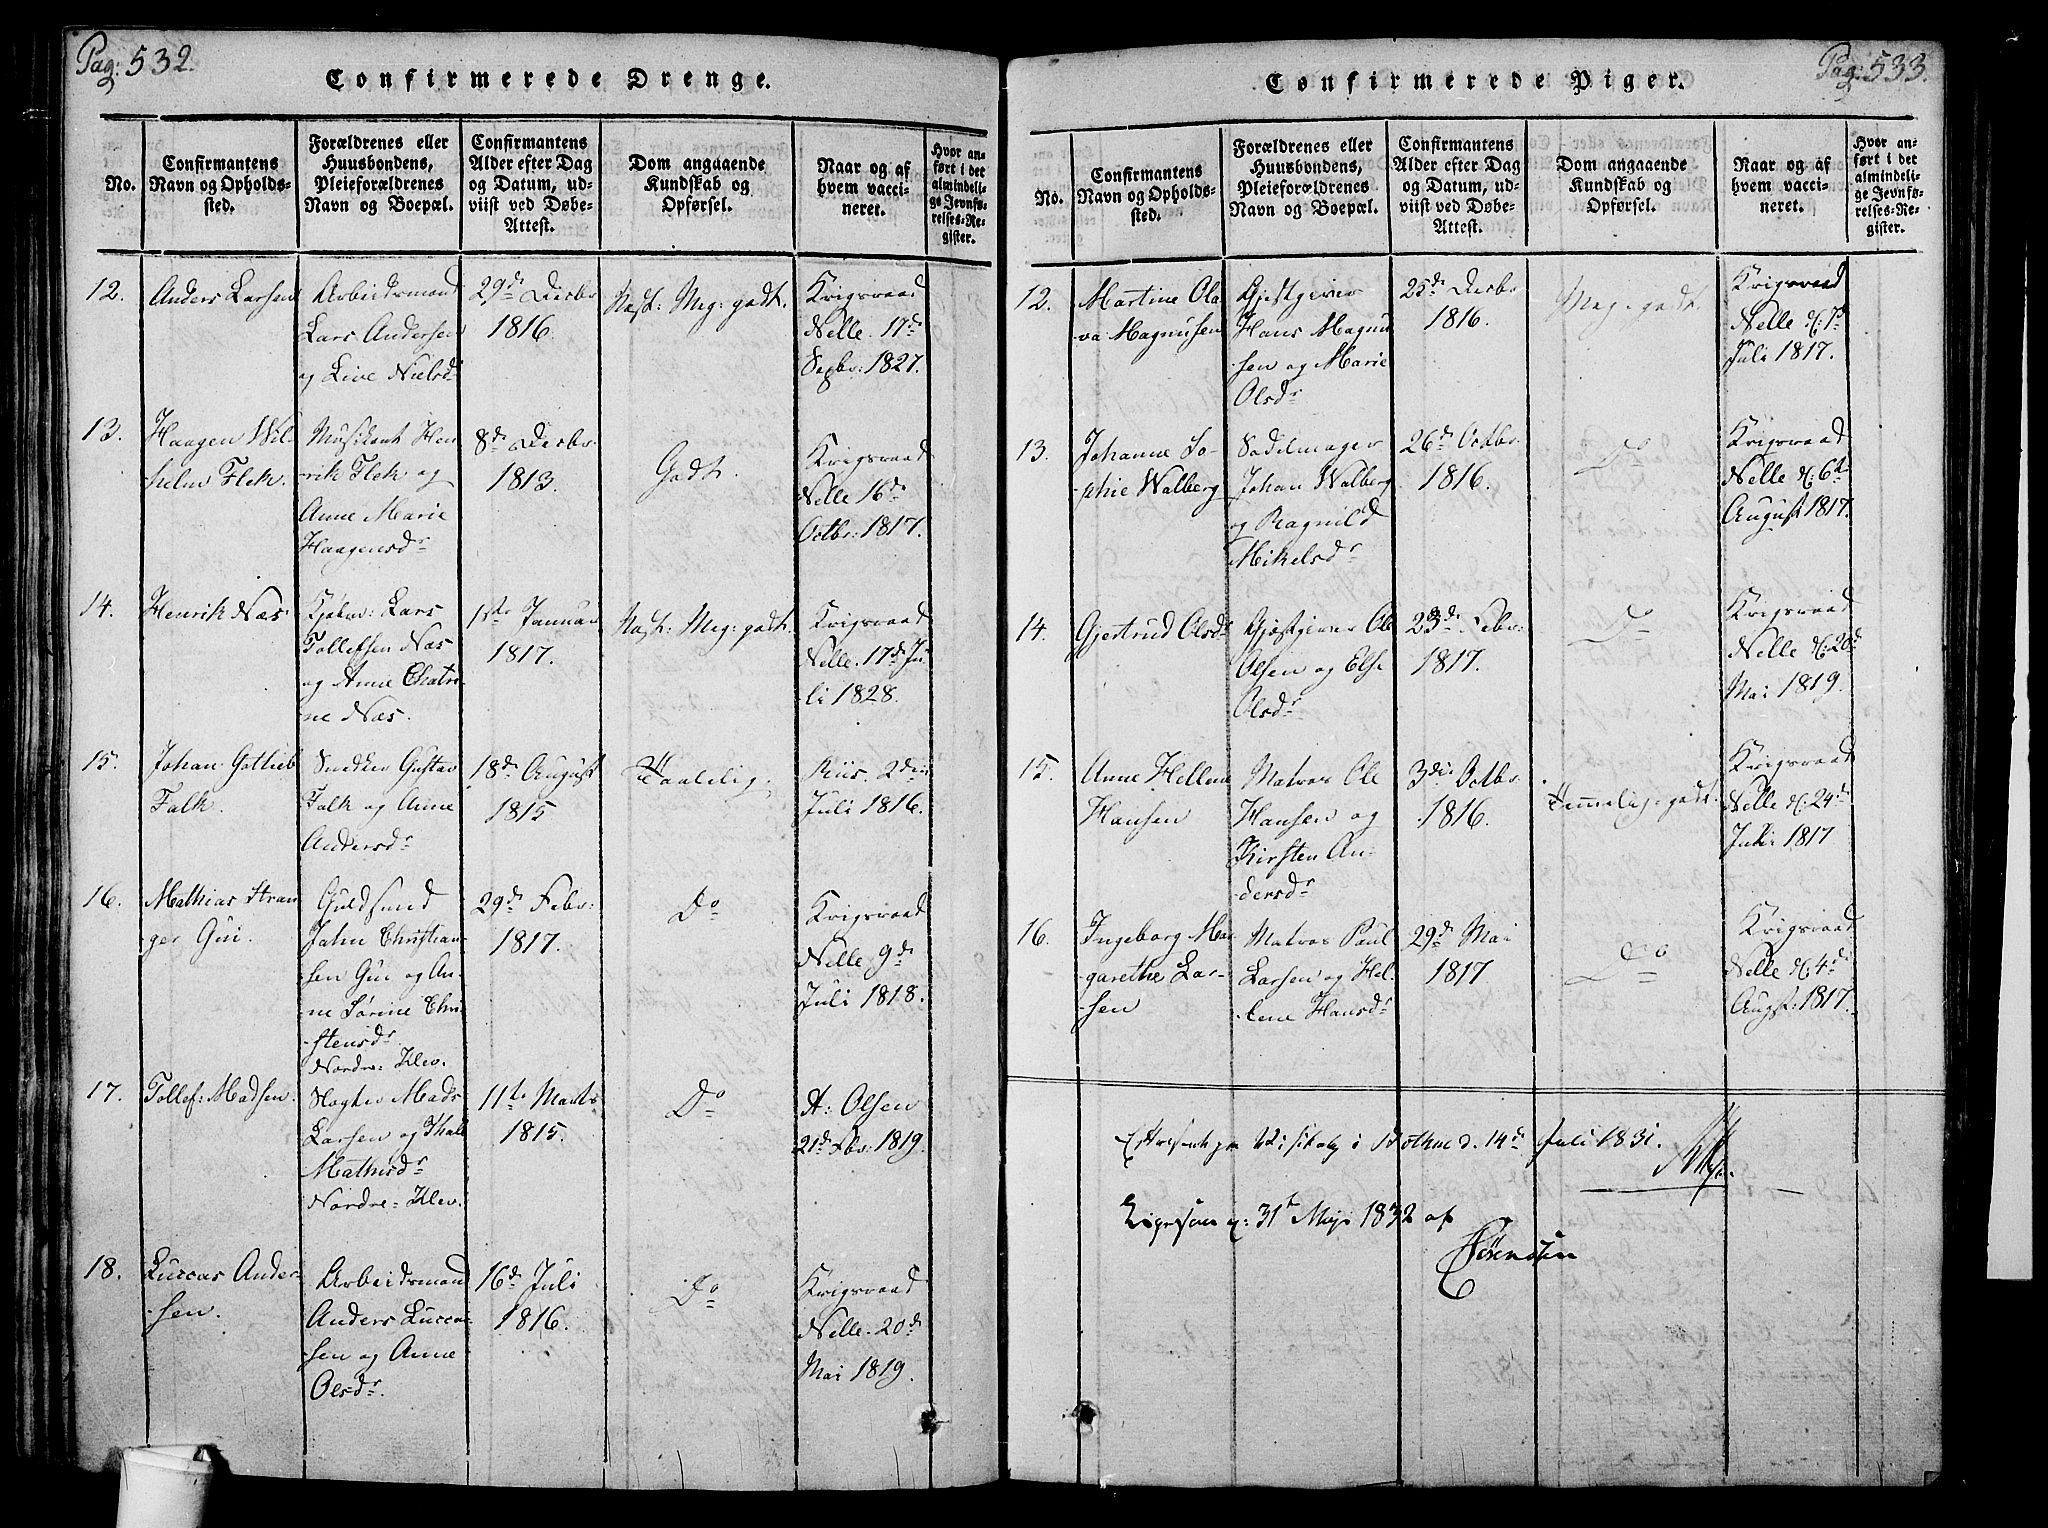 Pag: 532.
Confirmerede Drenge.
No.
Confirmantens
Navn og Opholds-
sted.
Forældrenes eller
Huusbondens,
Pleieforældrenes
Navn og Boepæl.
Confirmantens
Alder efter Dag
og Datum, ud-
viist ved Døbe-
Attest.
Dom angaaende
Kundskab og
Opførsel.
Naar og af
hvem vacci-
neret.
Hvor an-
ført i det
almindeli-
ge Jevnfø-
relses-Re-
gister.
12.
Anders Larsen
Arbeidsmand
Lars Andersen
og Live Nielsdr
29de Decbr
1816.
Næst: Meg: godt.
Krigsraad
Nelle. 17de
Sepbr: 1827.
13.
Haagen Wil-
helm Flek.
Musikant Hen-
rik Flek og
Anne Marie
Haagensdr
8de Decbr.
1813.
Godt.
Krigsraad
Nelle 16de
Octbr: 1817.
14.
Henrik Næs.
Kjøbm: Lars
Tollefsen Næs
og Anne Chatri-
ne Næs.
1ste Januar
1817.
Næst: Meg: godt.
Krigsraad
Nelle. 17de Ju-
li 1828.
15.
Johan Gottlieb
Falk.
Snedker Gustav
Falk og Anne
Andersdr
18de August
1815
Taalelig.
Riis. 2den
Juli 1816.
16.
Mathias Stran-
ger Gui.
Guldsmed
John Christian-
sen Gui og An-
ne Sørine Chri-
stensdr.
Nordre-Klev.
29de Febr:
1817.
Do
Krigsraad
Nelle 9de
Juli 1818.
17.
Tollef: Madsen.
Slagter Mads
Larsen og Thale
Mathisdr
Nordre-Klev.
11te Marts
1815.
Do
A: Olsen
21de Fbr: 1819.
18.
Luccas Ander-
sen.
Arbeidsmand
Anders Lucca-
sen og Anne
Olsdr.
16de Juli
1816.
Do
Krigsraad
Nelle. 20de
Mai 1819.
Pag: 533.
Confirmerede Piger.
No.
Confirmantens
Navn og Opholds-
sted.
Forældrenes eller
Huusbondens,
Pleieforældrenes
Navn og Boepæl.
Confirmantens
Alder efter Dag
og Datum, ud-
viist ved Døbe-
Attest.
Dom angaaende
Kundskab og
Opførsel.
Naar og af
hvem vacci-
neret.
Hvor an-
ført i det
almindeli-
ge Jevnfø-
relses-Re-
gister.
12.
Martine Ola-
va Magnusen
Gjestgiver
Hans Magnu-
sen og Marie
Olsdr
25de Decbr
1816.
Meg: godt.
Krigsraad
Nelle d: 7de
Juli 1817.
13.
Johanne So-
phie Walberg
Sadelmager
Johan Walberg
og Ragnild
Mikelsdr
26de Octbr
1816.
Do
Krigsraad
Nelle d: 6te
August 1817.
14.
Gjertrud Olsdr
Gjestgiver Ole
Olsen og Else
Olsdr
23de Febr:
1817.
Do
Krigsraad
Nelle d: 20de
Mai 1819.
15.
Anne Hellene
Hansen
Matros Ole
Hansen og
Kirsten An-
dersdr
3die Octbr.
1816.
Temmelig godt.
Krigsraad
Nelle d: 24de
Juli 1817
16.
Ingeborg Mar-
garethe Lar-
sen
Matros Paul
Larsen og Hel-
lene Hansdr
29de Mai
1817.
Do
Krigsraad
Nelle d: 4de
Augst: 1817.
Efterseet paa Visitats i d. 14de Juli 1831.
Ligesaa d: 31te Maji 1832 af
Sørenssen